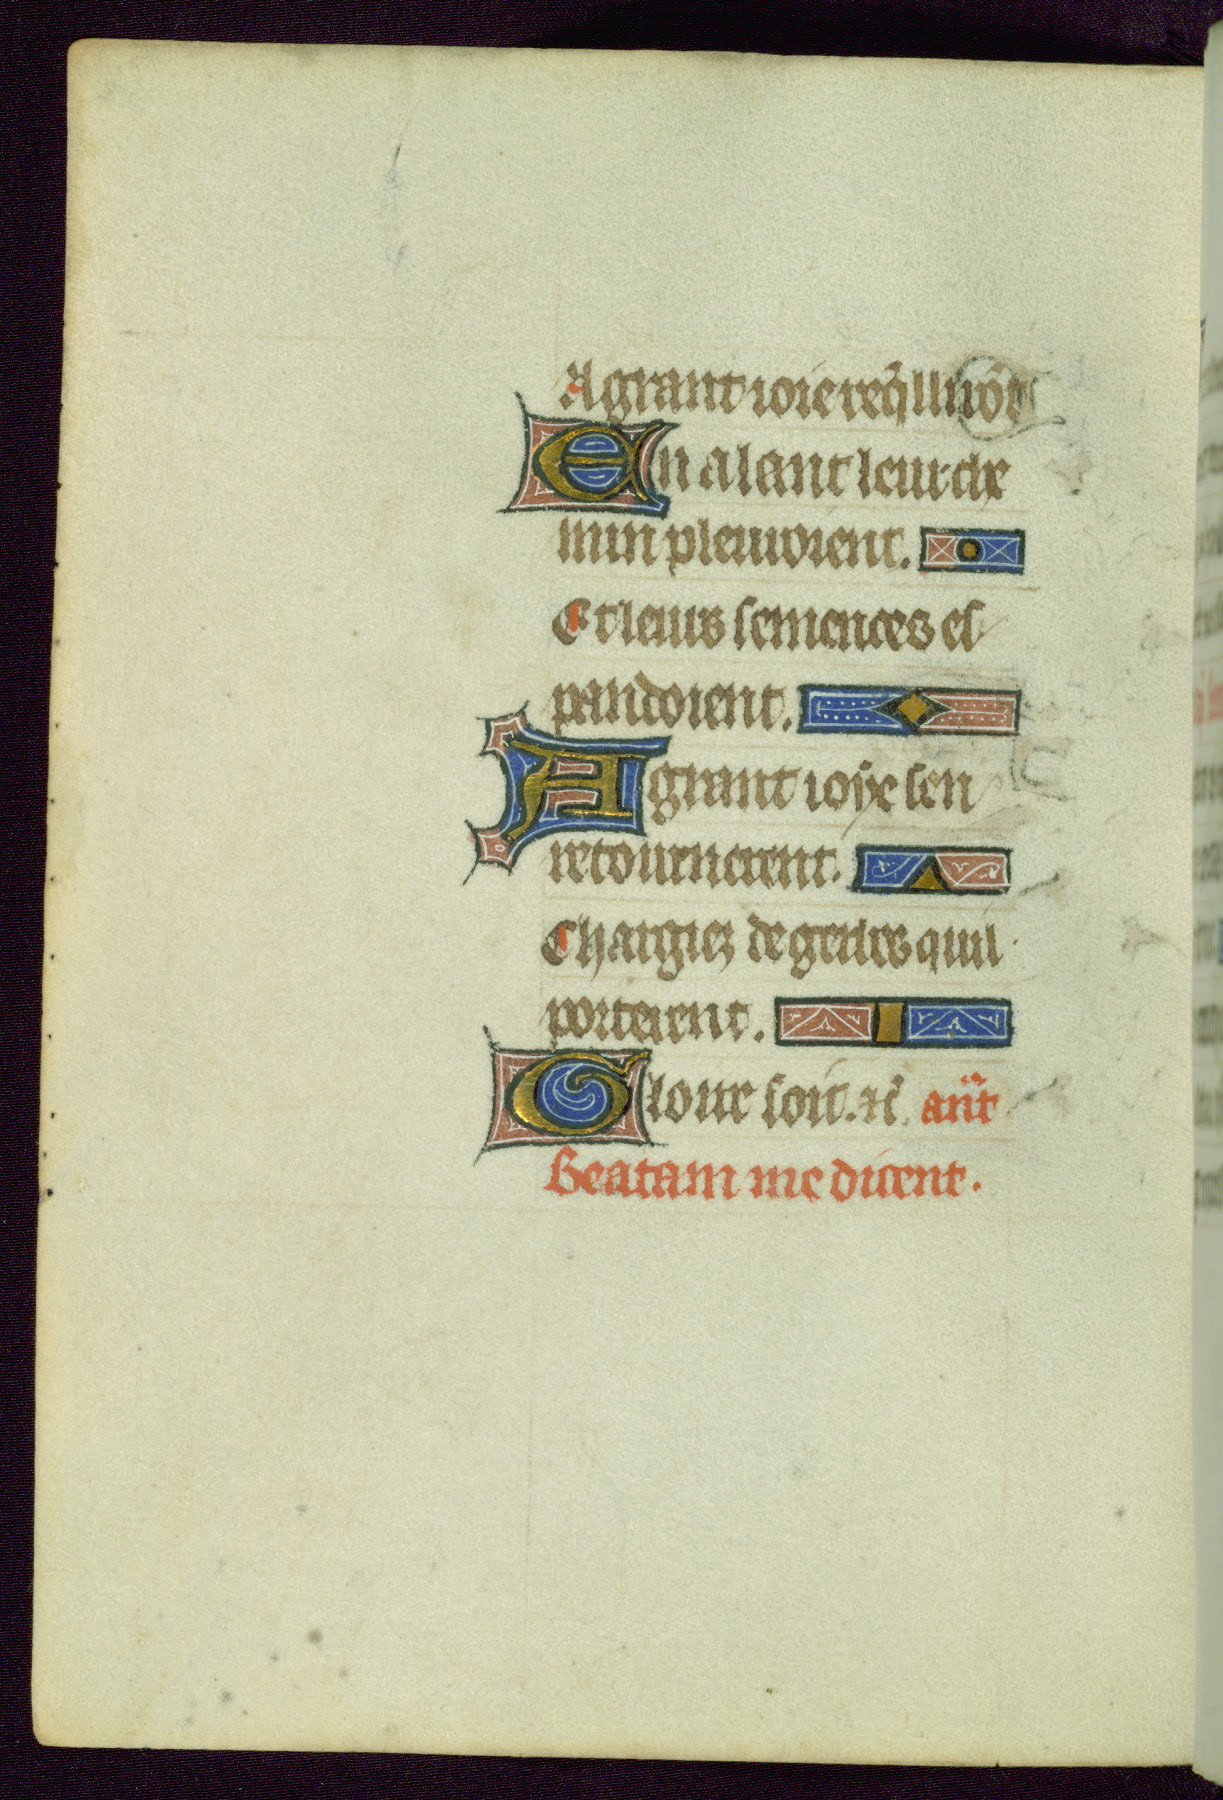 A grant ioie reqͥlluoiͤt
En alant leur che
min pleuuoient.
Et leurs semences es
pandoient.
A grant ioye sen
retournerent.
Chargiez de gerbes quil
porterent.
Gloire soit. ⁊c̄ ant̄
Beatam me dicent.